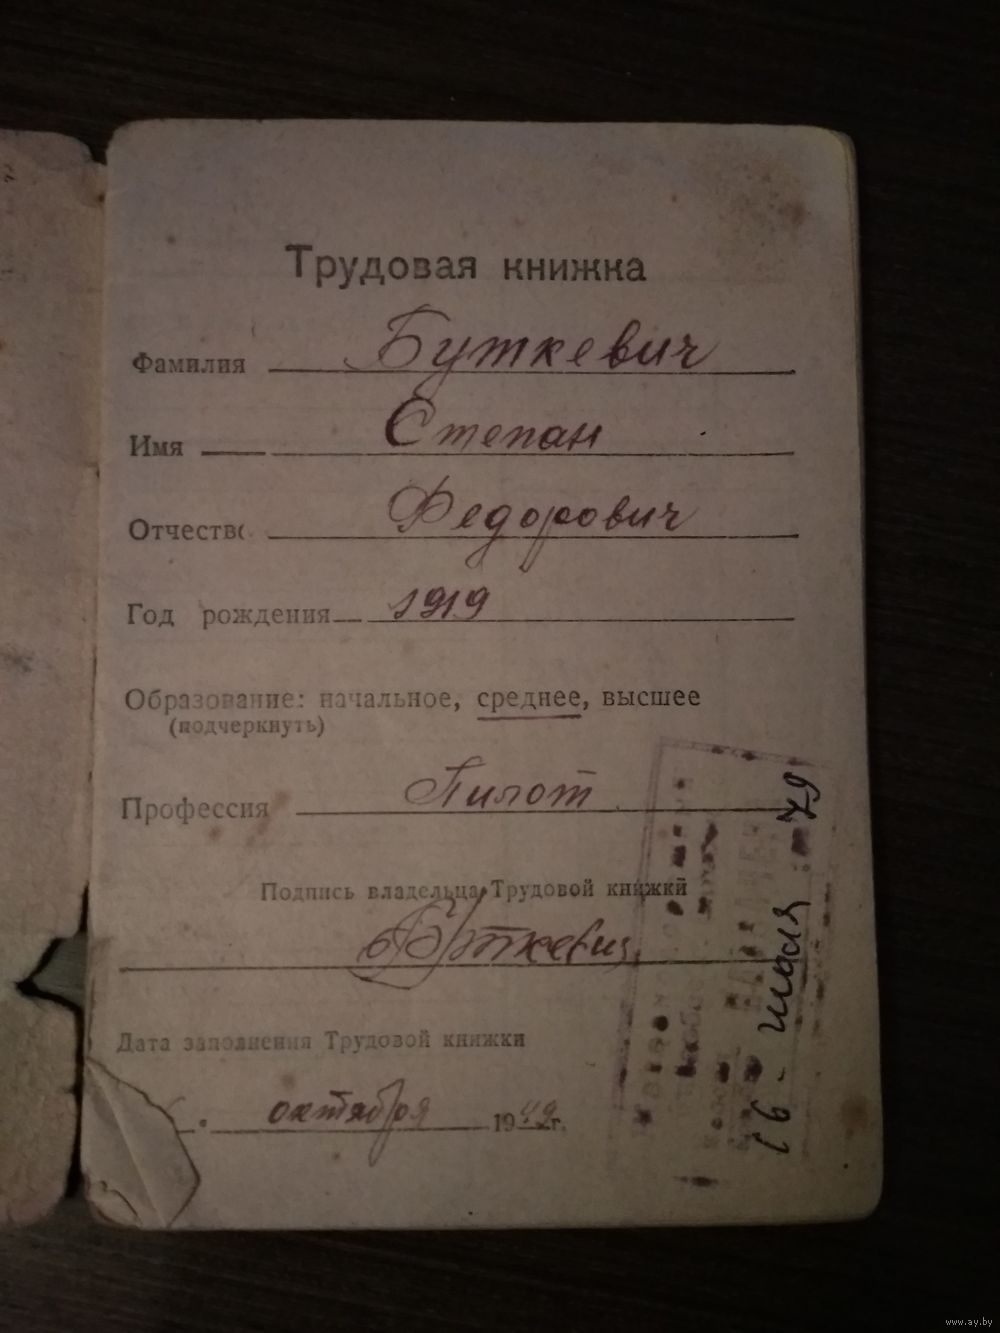 Трудовая книжка
Фамилия Буткевич
Имя Степан
Отчество Федорович
Год рождения 1919
Образование: начальное, среднее, высшее
(подчеркнуть)
Профессия Пилот
Подпись владельца Трудовой книжки
Буткевич
Дата заполнения Трудовой книжки
октября 1949г.
16 - июля 79
www.ay.by